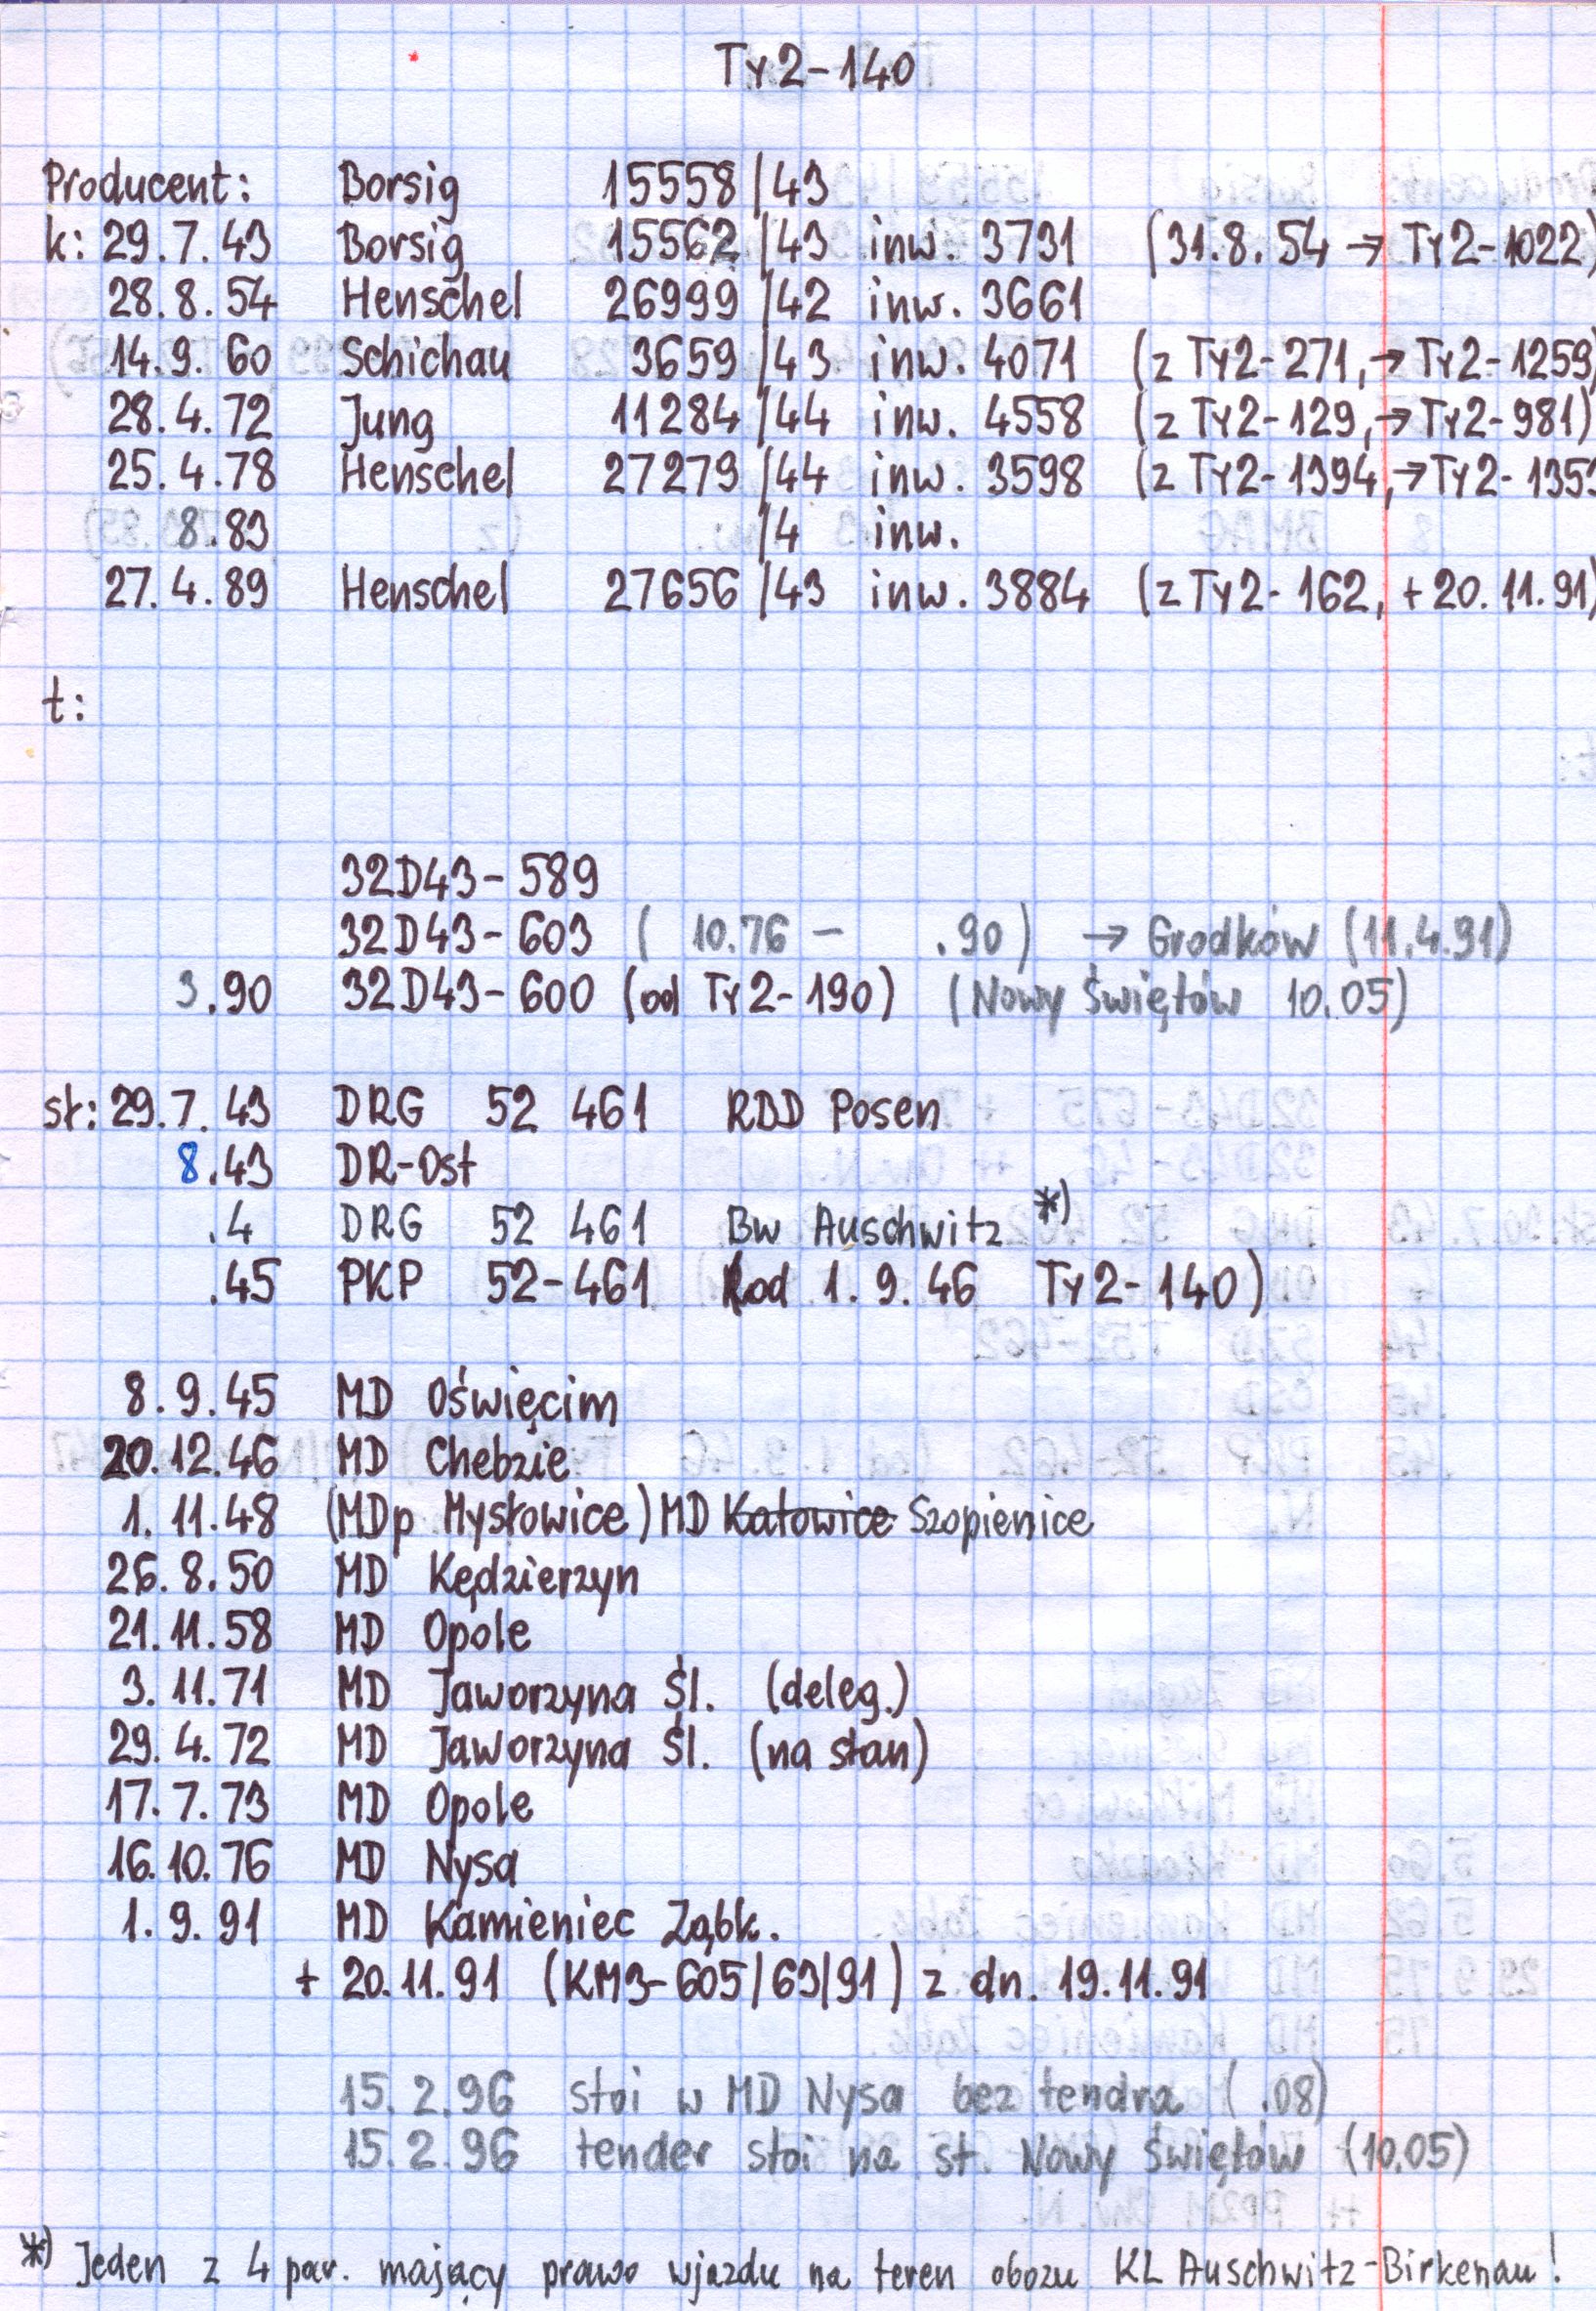 Ty2-140
Producent: Borsig 15558/43
k: 29.7.43 Borsig 15562/43 inw. 3731 (31.8.54 → Ty2-1022)
28.8.54 Henschel 26999/42 inw. 3661
14.9.60 Schichau 3659/43 inw. 4071 (z Ty2-271, → Ty2-1259)
28.4.72 Jung 11284/44 inw. 4558 (z Ty2-129, → Ty2-981)
25.4.78 Henschel 27279/44 inw. 3598 (z Ty2-1394, → Ty2-1359
8.83 /4 inw.
27.4.89 Henschel 27656/43 inw. 3884 (z Ty2-162, + 20.11.91)
t:
32D43-589
32D43-603 ( 10.76 - .90) → Grodków (11.4.91)
3.90 32D43-600 (od Ty2-190) (Nowy Świętów 10.05)
st: 29.7.43 DRG 52 461 RBD Posen
8.43 DR-Ost
.4 DRG 52 461 Bw Auschwitz *)
.45 PKP 52-461 (od 1.9.46 Ty2-140)
8.9.45 MD Oświęcim
20.12.46 MD Chebzie
1.11.48 (MDp Mysłowice) MD Katowice Szopienice
26.8.50 MD Kędzierzyn
21.11.58 MD Opole
3.11.71 MD Jaworzyna Śl. (deleg.)
29.4.72 MD Jaworzyna Śl. (na stan)
17.7.73 MD Opole
16.10.76 MD Nysa
1.9.91 MD Kamieniec Ząbk.
+ 20.11.91 (KM3-605/63/91) z dn. 19.11.91
15.2.96 stoi w MD Nysa bez tendra ( .08)
15.2.96 tender stoi na st. Nowy Świętów (10.05)
*) Jeden z 4 par. mający prawo wjazdu na teren obozu KL Auschwitz-Birkenau!